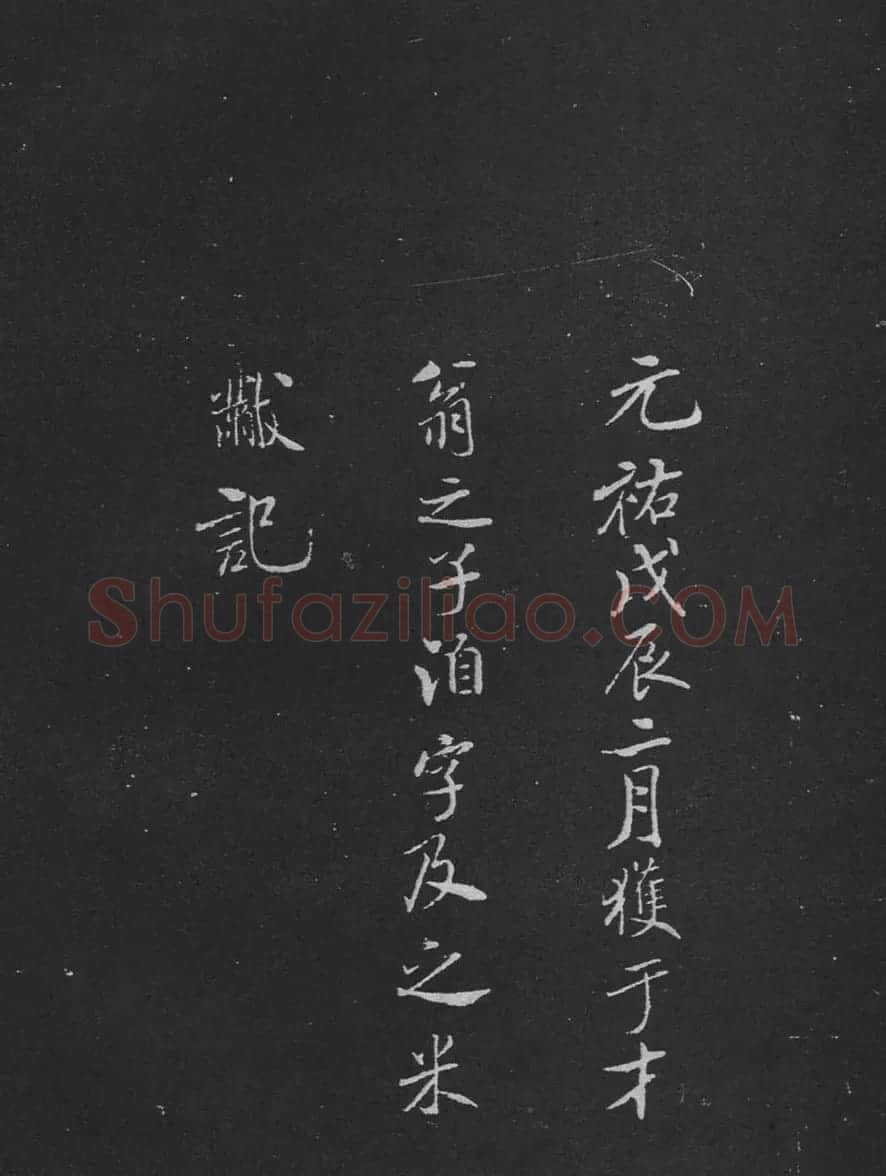 元祐戊辰二月獲于才
翁之子洎字及之米
黻記
Shufaziliao.COM